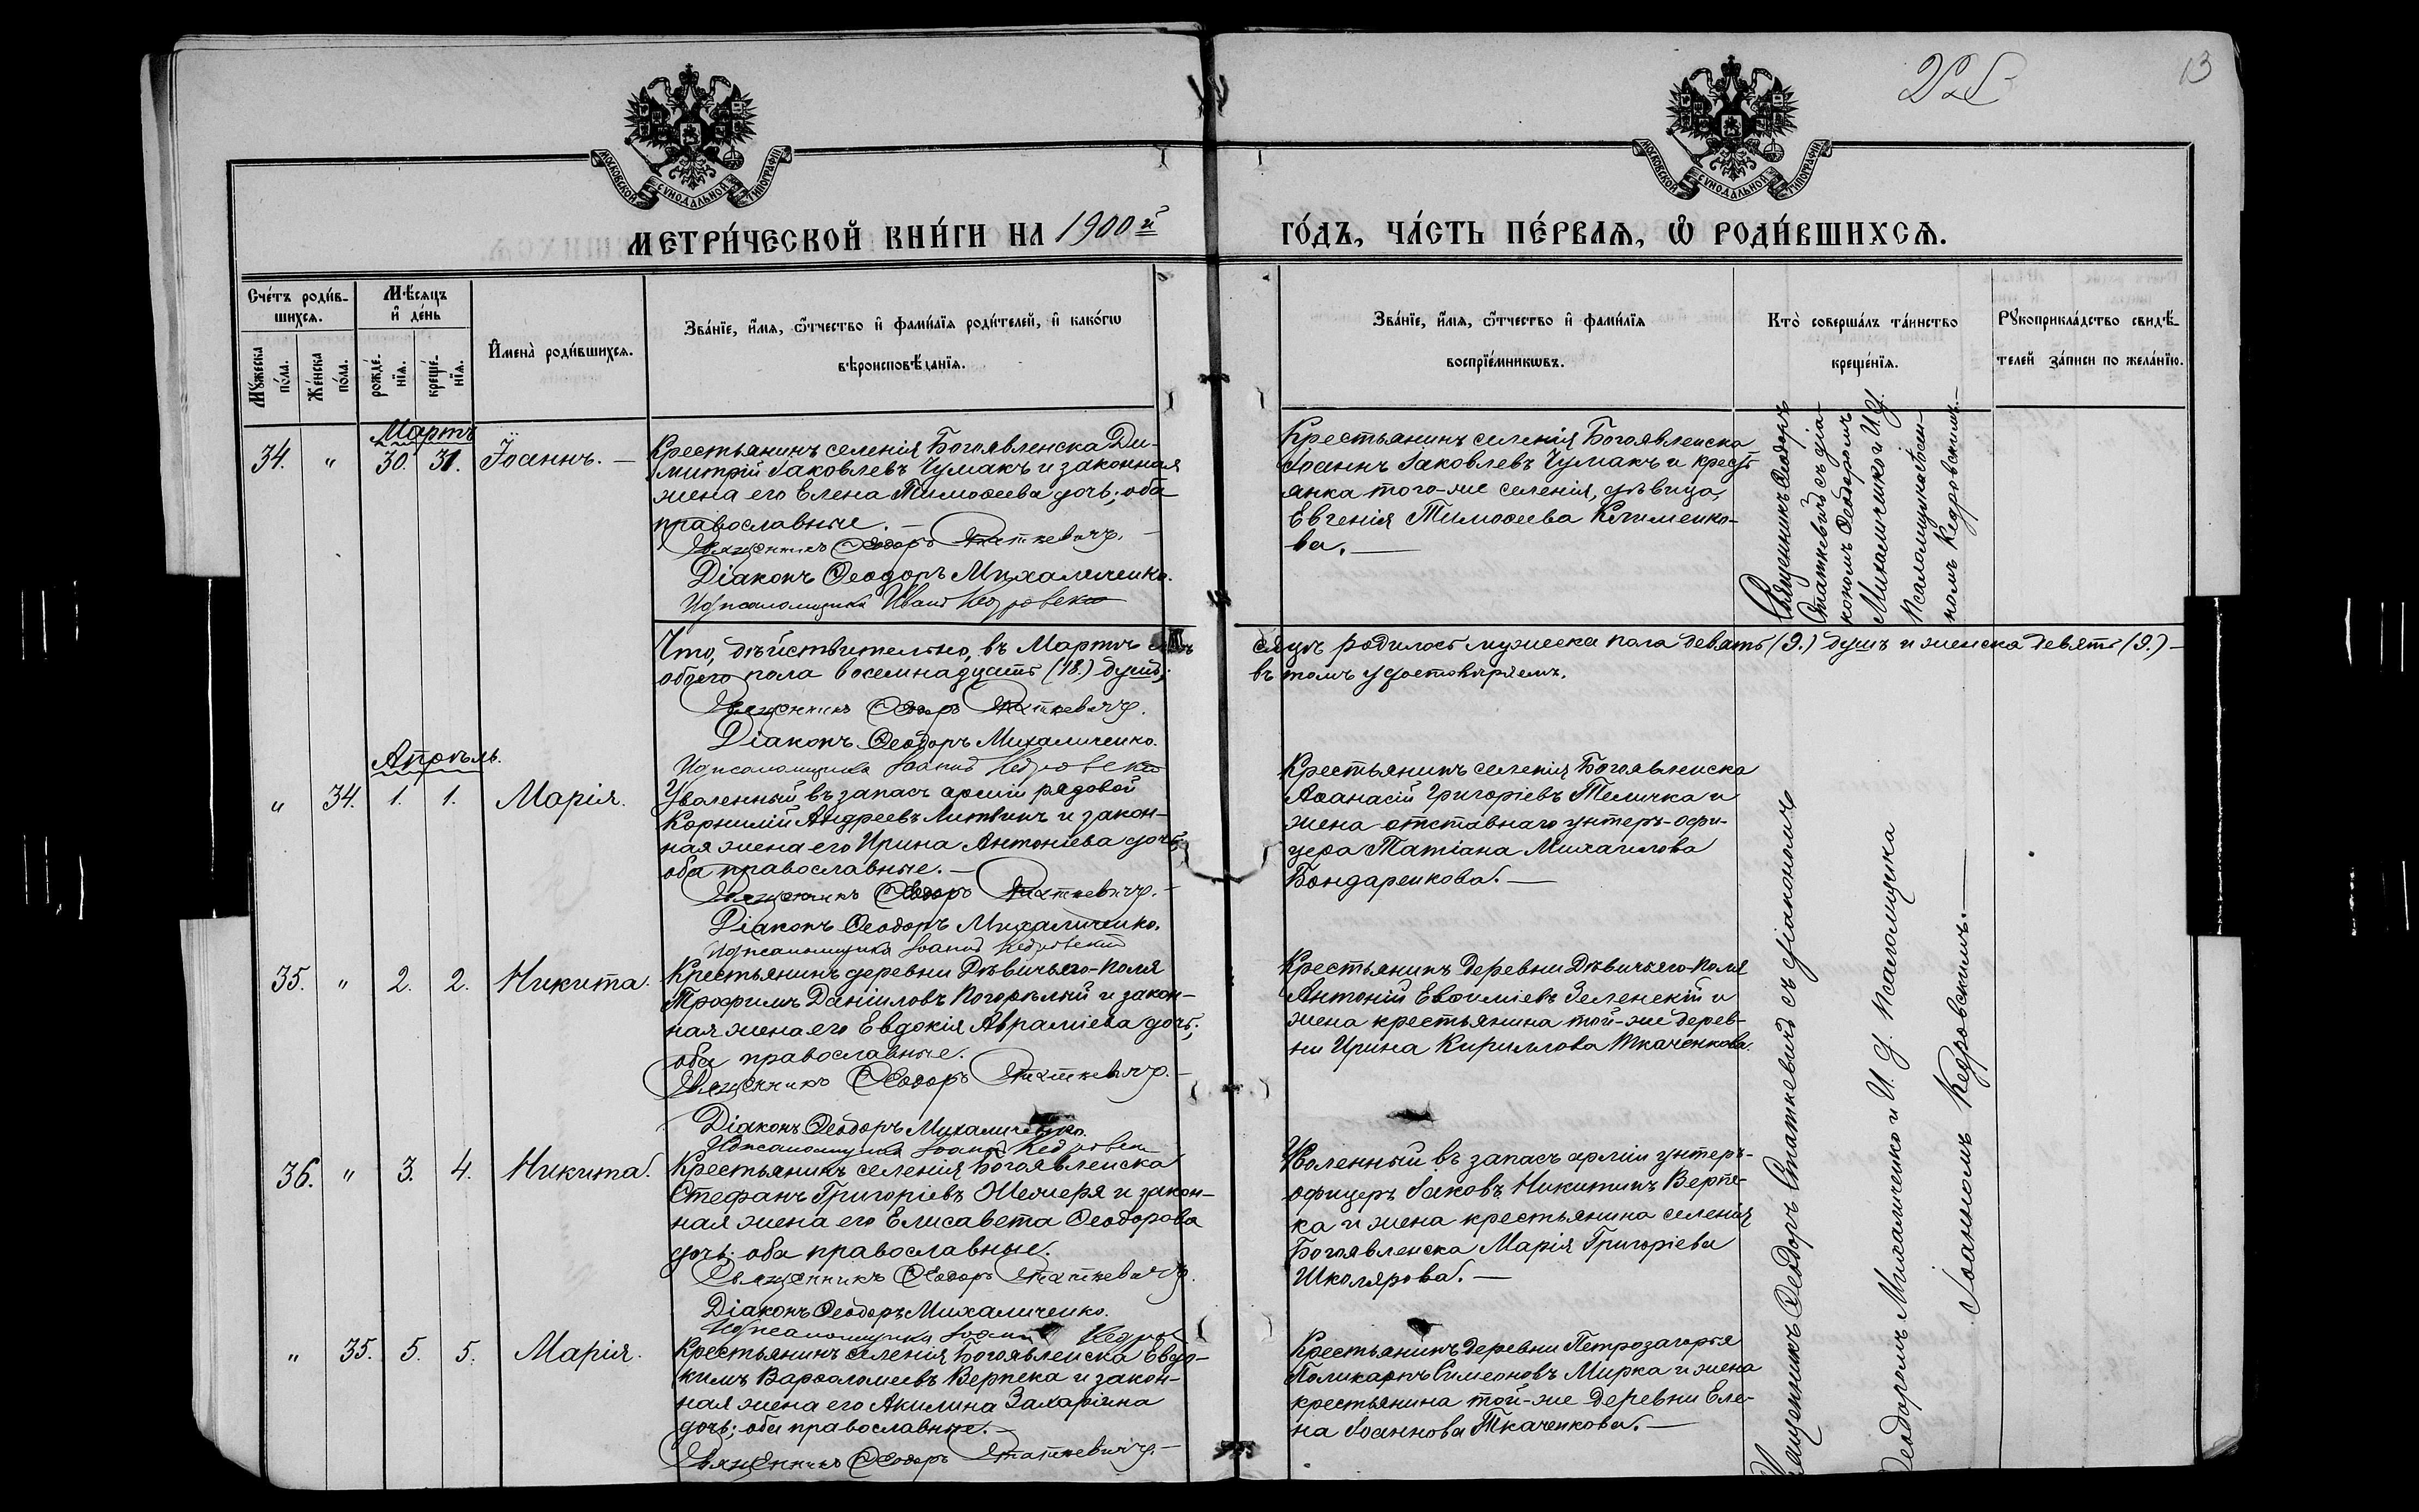 13
МОСКОВСКОЙ СѴНОДАЛЬНОЙ ТИПОГРАФІИ
МОСКОВСКОЙ СѴНОДАЛЬНОЙ ТИПОГРАФІИ
МЕТРИ́ЧЕСКОЙ КНИ́ГИ НА 1900й
ГО́ДЪ, ЧА́СТЬ ПЕ́РВАѦ, Ѡ҆ РОДИ́ВШИХСѦ.
Сче́тъ роди́в-
шихсѧ.
Мꙋ́жеска по́ла.
Же́нска по́ла.
Мѣ́сѧцъ
и҆ де́нь
рожде́-
нїѧ.
креще́-
нїѧ.
И҆мена̀ роди́вшихсѧ.
Зва́нїе, и҆́мѧ, ѻ҆́тчество и҆ фами́лїѧ роди́телей, и҆ како́гѡ
вѣроисповѣ́данїѧ.
Зва́нїе, и҆́мѧ, ѻ҆́тчество и҆ фами́лїѧ
воспрїе́мникѡвъ.
Кто̀ соверша́лъ та́инство
креще́нїѧ.
Рꙋкоприкла́дство свидѣ́-
телей за́писи по жела́нїю.
Мартъ
34. " 30. 31. Іоаннъ. —
Крестьянинъ селенія Богоявленска Ди-
митрій Іаковлевъ Чумакъ и законная
жена его Елена Тимоѳеева дочь; оба
православные. —
Священникъ Ѳеодоръ Статкевичъ. —
Діаконъ Ѳеодоръ Михаличенко.
И д псаломщика Иванъ Кедровскій
Крестьянинъ селенія Богоявленска
Іоаннъ Іаковлевъ Чумакъ и кресть
янка того-же селенія, дѣвица,
Евгенія Тимоѳеева Клименко-
ва. —
Священникъ Ѳеодоръ
Статкевичъ съ діа-
кономъ Ѳеодоромъ
Михаличенко и И. д.
псаломщика Іоан-
номъ Кедровскимъ. —
Что, дѣйствительно, въ Мартѣ мѣ
сяцѣ родилось мужеска пола девять (9.) душъ и женска девять (9.) —
обоего пола восемнадцать (18.) душъ;
въ томъ удостовѣряемъ.
Священникъ Ѳеодоръ Статкевичъ.
Діаконъ Ѳеодоръ Михаличенко.
И д псаломщика Іоаннъ Кедровскій
Апрѣль.
" 34. 1. 1. Марія.
Уволенный въ запасъ арміи рядовой
Корнилій Андреевъ Литвинъ и закон-
ная жена его Ирина Антоніева дочь
оба православные. —
Священникъ Ѳеодоръ Статкевичъ. —
Діаконъ Ѳеодоръ Михаличенко.
И д псаломщика Іоаннъ Кедровскій
Крестьянинъ селенія Богоявленска
Аѳанасій Григоріевъ Теличка и
жена отставнаго унтеръ-офи-
цера Татіана Михаилова
Бондаренкова. —
35. " 2. 2. Никита.
Крестьянинъ деревни Дѣвичьяго-поля
Трофимъ Даніиловъ Погорѣлый и закон-
ная жена его Евдокія Авраміева дочь;
оба православные.
Священникъ Ѳеодоръ Статкевичъ. —
Діаконъ Ѳеодоръ Михаличенко.
И д псаломщика Іоаннъ Кедровскій
Крестьянинъ деревни Дѣвичьяго-поля
Антоній Евѳиміевъ Зеленскій и
жена крестьянина той-же дерев-
ни Ирина Кириллова Ткаченкова.
36. " 3. 4. Никита.
Крестьянинъ селенія Богоявленска
Стефанъ Григоріевъ Жемеря и закон-
ная жена его Елисавета Ѳеодорова
дочь; оба православные.
Священникъ Ѳеодоръ Статкевичъ.
Діаконъ Ѳеодоръ Михаличенко.
И д псаломщика Іоаннъ Кедров
Уволенный въ запасъ арміи унтеръ-
офицеръ Іаковъ Никитинъ Верпе-
ка и жена крестьянина селенія
Богоявленска Марія Григоріева
Школярова. —
" 35. 5. 5. Марія.
Крестьянинъ селенія Богоявленска Евдо-
кимъ Варѳоломеевъ Верпека и закон-
ная жена его Акилина Захаріина
дочь; оба православные. —
Священникъ Ѳеодоръ Статкевичъ. —
Крестьянинъ деревни Петрозагорья
Поликарпъ Симеоновъ Мирка и жена
крестьянина той-же деревни Еле-
на Іоаннова Ткаченкова. —
Священникъ Ѳеодоръ Статкевичъ съ діакономъ
Ѳеодоромъ Михаличенко и И. д. псаломщика
Іоанномъ Кедровскимъ. —